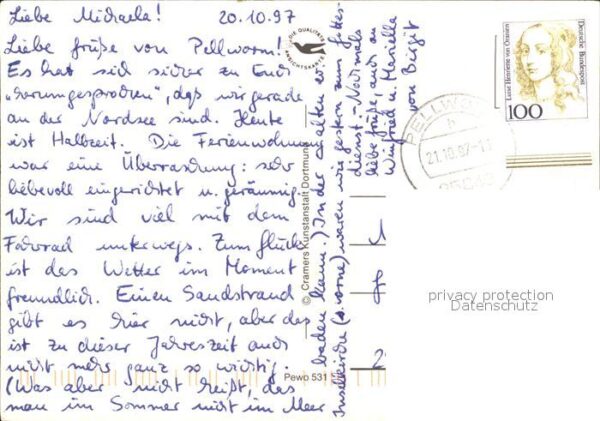 Liebe Michaela! 20.10.97
Liebe Grüße von Pellworm!
Es hat sich sicher zu Euch
„herumgesprochen“, daß wir gerade
an der Nordsee sind. Heute
ist Halbzeit. Die Ferienwohnung
war eine Überraschung: sehr
liebevoll eingerichtet u. geräumig.
Wir sind viel mit dem
Fahrrad unterwegs. Zum Glück
ist das Wetter im Moment
freundlich. Einen Sandstrand
gibt es hier nicht, aber das
ist zu dieser Jahreszeit auch
nicht mehr ganz so wichtig.
(Was aber nicht heißt, das
man im Sommer nicht im Meer
baden kann.) In der alten
Inselkirche (s. vorne) waren wir gestern zum Gottes-
dienst – Nochmals
liebe Grüße, auch an
Winfried u. Mariella
von Birgit
DIE QUALITÄTS
ANSICHTSKARTE
© Cramers Kunstanstalt Dortmund
Pewo 531
PELLWORM
h
21.10.97-11
25849
Luise Henriette von Oranien
Deutsche Bundespost
100
privacy protection
Datenschutz